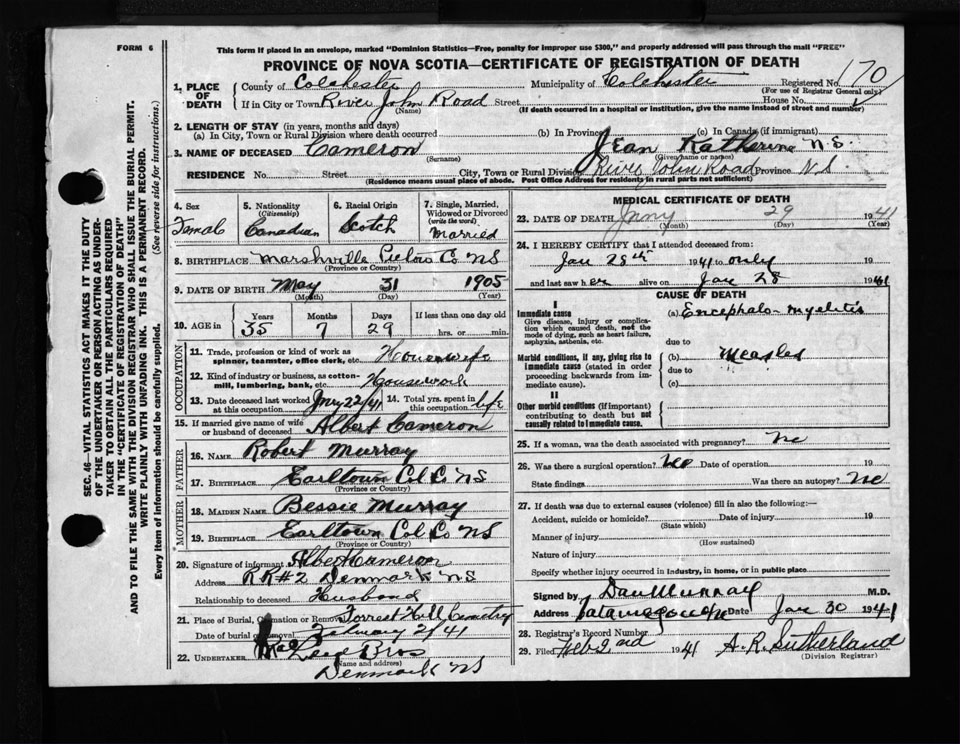 FORM 6
This form if placed in an envelope, marked "Dominion Statistics—Free, penalty for improper use $300," and properly addressed will pass through the mail "FREE"
PROVINCE OF NOVA SCOTIA—CERTIFICATE OF REGISTRATION OF DEATH
1. PLACE OF DEATH County of Colchester Municipality of Colchester Registered No. 170
(For use of Registrar General only)
If in City or Town River John Road Street House No.
(Name) (If death occurred in a hospital or institution, give the name instead of street and number)
2. LENGTH OF STAY (in years, months and days)
(a) In City, Town or Rural Division where death occurred (b) In Province (c) In Canada (if immigrant)
3. NAME OF DECEASED Cameron Jean Katherine N.S.
(Surname) (Given name or names)
RESIDENCE No. Street City, Town or Rural Division River John Road Province N.S.
(Residence means usual place of abode. Post Office Address for residents in rural parts not sufficient)
4. Sex Female
5. Nationality (Citizenship) Canadian
6. Racial Origin Scotch
7. Single, Married, Widowed or Divorced (write the word) Married
8. BIRTHPLACE Marshville Pictou Co NS
(Province or Country)
9. DATE OF BIRTH May 31 1905
(Month) (Day) (Year)
10. AGE in Years Months Days If less than one day old
35 7 29 hrs. or min.
OCCUPATION
11. Trade, profession or kind of work as spinner, teamster, office clerk, etc. Housewife
12. Kind of industry or business, as cotton-mill, lumbering, bank, etc. Housework
13. Date deceased last worked at this occupation Jnry 22/41 14. Total yrs. spent in this occupation life
15. If married give name of wife or husband of deceased Albert Cameron
FATHER
16. NAME Robert Murray
17. BIRTHPLACE Earltown Col Co NS
(Province or Country)
MOTHER
18. MAIDEN NAME Bessie Murray
19. BIRTHPLACE Earltown Col Co NS
(Province or Country)
20. Signature of informant Albert Cameron
Address RR#2 Denmark NS
Relationship to deceased Husband
21. Place of Burial, Cremation or Removal Forrest Hill Cemetry
Date of burial or removal February 2/41
22. UNDERTAKER Bros
(Name and address)
Denmark NS
MEDICAL CERTIFICATE OF DEATH
23. DATE OF DEATH Jnry 29 1941
(Month) (Day) (Year)
24. I HEREBY CERTIFY that I attended deceased from:
Jan 28th 1941 to only 19
and last saw her alive on Jan 28 1941
CAUSE OF DEATH
I
Immediate cause (a) Encephalo-myelitis
Give disease, injury or complication which caused death, not the mode of dying, such as heart failure, asphyxia, asthenia, etc.
due to
Morbid conditions, if any, giving rise to immediate cause (stated in order proceeding backwards from immediate cause). (b) Measles
due to
(c)
II
Other morbid conditions (if important) contributing to death but not causally related to immediate cause.
25. If a woman, was the death associated with pregnancy? no
26. Was there a surgical operation? no Date of operation 19
State findings Was there an autopsy? no
27. If death was due to external causes (violence) fill in also the following:
Accident, suicide or homicide? Date of injury 19
(State which)
Manner of injury
(How sustained)
Nature of injury
Specify whether injury occurred in industry, in home, or in public place
Signed by Dan Murray M.D.
Address Tatamagouche Date Jan 30 1941
28. Registrar's Record Number
29. Filed Feb 2nd 1941 A. R. Sutherland
(Division Registrar)
SEC. 46—VITAL STATISTICS ACT MAKES IT THE DUTY
OF THE UNDERTAKER OR PERSON ACTING AS UNDER-
TAKER TO OBTAIN ALL THE PARTICULARS REQUIRED
IN THE "CERTIFICATE OF REGISTRATION OF DEATH"
AND TO FILE THE SAME WITH THE DIVISION REGISTRAR WHO SHALL ISSUE THE BURIAL PERMIT.
WRITE PLAINLY WITH UNFADING INK. THIS IS A PERMANENT RECORD.
Every item of information should be carefully supplied. (See reverse side for instructions.)